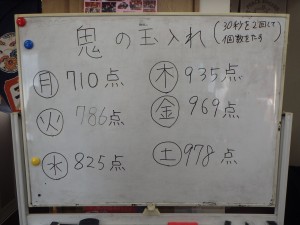 鬼の玉入れ(30秒を2回して
個数をたす)
月 710点
火 786点
水 825点
木 935点
金 969点
土 978点